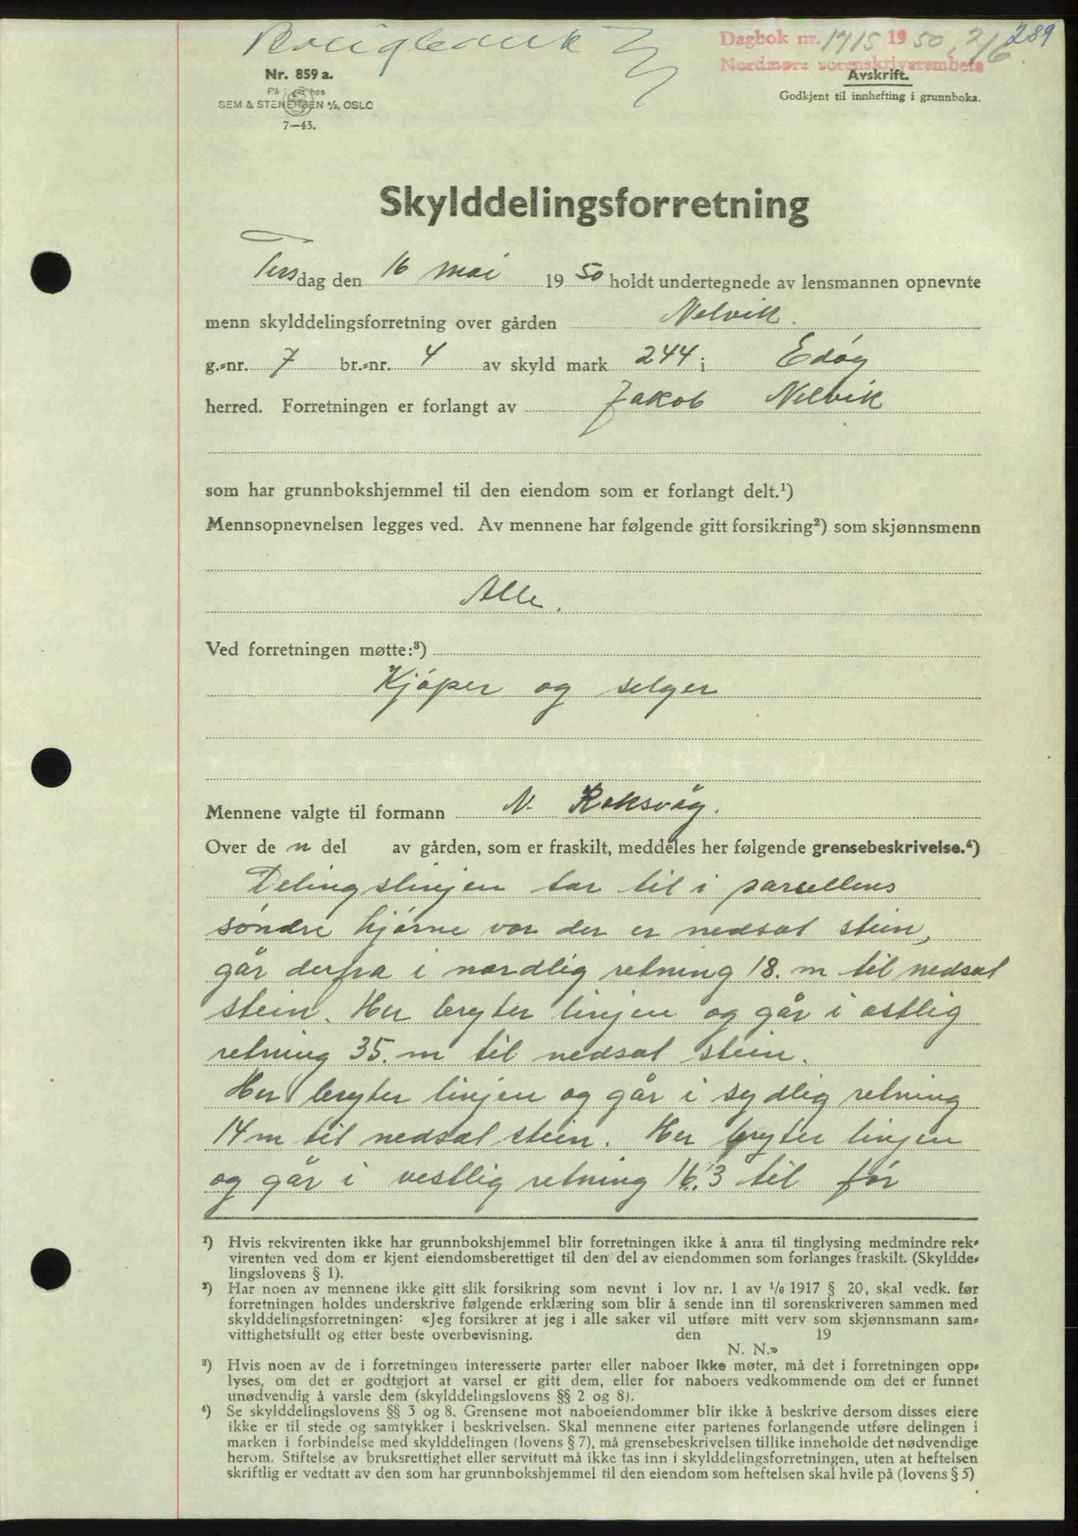 Boligbank
Dagbok nr. 1715 1950, 2/6 289
Nordmøre sorenskriverembete
Nr. 859 a.
Avskrift.
På lager hos
SEM & STENERSEN A/S, OSLO
Godkjent til innhefting i grunnboka.
7—43.
Skylddelingsforretning
Tirsdag den 16 mai 1950 holdt undertegnede av lensmannen opnevnte
menn skylddelingsforretning over gården Nelvik.
g.-nr. 7 br.-nr. 4 av skyld mark 244 i Edøy
herred. Forretningen er forlangt av Jakob Nelvik
som har grunnbokshjemmel til den eiendom som er forlangt delt.¹)
Mennsopnevnelsen legges ved. Av mennene har følgende gitt forsikring²) som skjønnsmenn
Alle.
Ved forretningen møtte:³)
Kjøper og selger
Mennene valgte til formann N. Roksvåg.
Over de n del av gården, som er fraskilt, meddeles her følgende grensebeskrivelse.⁴)
Delingslinjen tar til i parsellens
søndre hjørne vor der er nedsat stein,
går derfra i nordlig retning 18. m til nedsat
stein. Her bryter linjen og går i østlig
retning 35. m til nedsat stein.
Her bryter linjen og går i sydlig retning
14 m til nedsat stein. Her bryter linjen
og går i vestlig retning 16.3 til før
¹) Hvis rekvirenten ikke har grunnbokshjemmel blir forretningen ikke å anta til tinglysing medmindre rek-
virenten ved dom er kjent eiendomsberettiget til den del av eiendommen som forlanges fraskilt. (Skyldde-
lingslovens § 1).
²) Har noen av mennene ikke gitt slik forsikring som nevnt i lov nr. 1 av 1/6 1917 § 20, skal vedk. før
forretningen holdes underskrive følgende erklæring som blir å sende inn til sorenskriveren sammen med
skylddelingsforretningen: «Jeg forsikrer at jeg i alle saker vil utføre mitt verv som skjønnsmann sam-
vittighetsfullt og etter beste overbevisning. den 19
N. N.»
³) Hvis noen av de i forretningen interesserte parter eller naboer ikke møter, må det i forretningen opp-
lyses, om det er godtgjort at varsel er gitt dem, eller for naboers vedkommende om det er funnet
unødvendig å varsle dem (skylddelingslovens §§ 2 og 8).
⁴) Se skylddelingslovens §§ 3 og 8. Grensene mot naboeiendommer blir ikke å beskrive dersom disses eiere
ikke er til stede og samtykker i beskrivelsen. Skal mennene etter partenes forlangende utføre delingen i
marken i forbindelse med skylddelingen (lovens § 7), må grensebeskrivelsen tillike inneholde det nødvendige
herom. Stiftelse av bruksrettighet eller servitutt må ikke tas inn i skylddelingsforretningen, uten at heftelsen
skriftlig er vedtatt av den som har grunnbokshjemmel til den eiendom som heftelsen skal hvile på (lovens § 5)